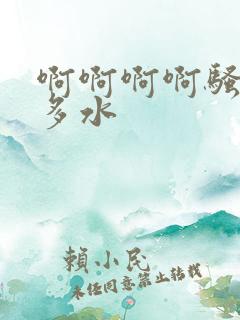 啊啊啊啊骚
多水
賴小民
未经同意禁止转载